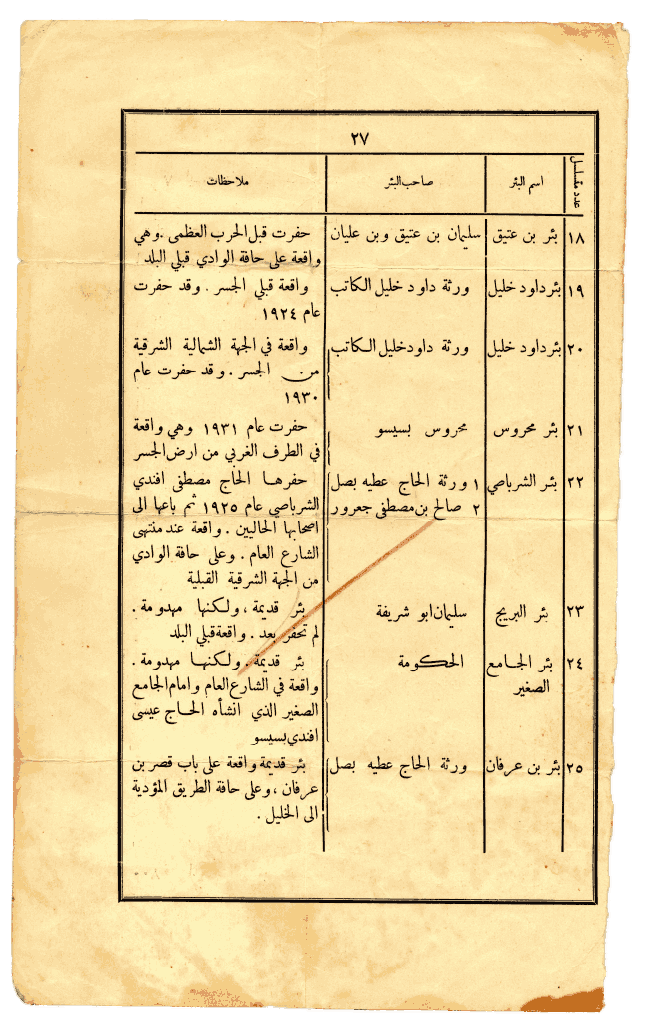 ٢٧
عدد متسلسل
اسم البئر
صاحب البئر
ملاحظات
١٨ بئر بن عتيق سليمان بن عتيق وبن عليان حفرت قبل الحرب العظمى . وهي
واقعة على حافة الوادي قبلي البلد
١٩ بئر داود خليل ورثة داود خليل الكاتب واقعة قبلي الجسر . وقد حفرت
عام ١٩٢٤
٢٠ بئر داود خليل ورثة داود خليل الكاتب واقعة في الجهة الشمالية الشرقية
من الجسر . وقد حفرت عام
١٩٣٠
٢١ بئر محروس محروس بسيسو حفرت عام ١٩٣١ وهي واقعة
في الطرف الغربي من ارض الجسر
٢٢ بئر الشرباصي ١ ورثة الحاج عطيه بصل حفرها الحاج مصطفى افندي
٢ صالح بن مصطفى جعرور الشرباصي عام ١٩٢٥ ثم باعها الى
اصحابها الحاليين . واقعة عند منتهى
الشارع العام . وعلى حافة الوادي
من الجهة الشرقية القبلية
٢٣ بئر البريج سليمان ابو شريفة بئر قديمة ، ولكنها مهدومة .
لم تحفر بعد . واقعة قبلي البلد
٢٤ بئر الجامع الحكومة بئر قديمة . ولكنها مهدومة .
الصغير واقعة في الشارع العام وامام الجامع
الصغير الذي انشأه الحاج عيسى
افندي بسيسو
٢٥ بئر بن عرفان ورثة الحاج عطيه بصل بئر قديمة واقعة على باب قصر بن
عرفان ، وعلى حافة الطريق المؤدية
الى الخليل .